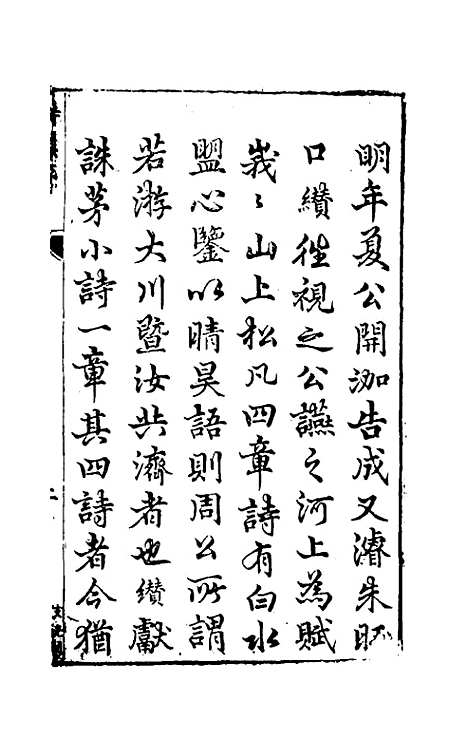 明年夏公開泇告成又濬朱旺
口纉徃視之公讌之河上為賦
峩〻山上松凡四章詩有白水
盟心鑒以晴昊語則周公所謂
若游大川暨汝共濟者也纉獻
誅茅小詩一章其四詩者今猶
二